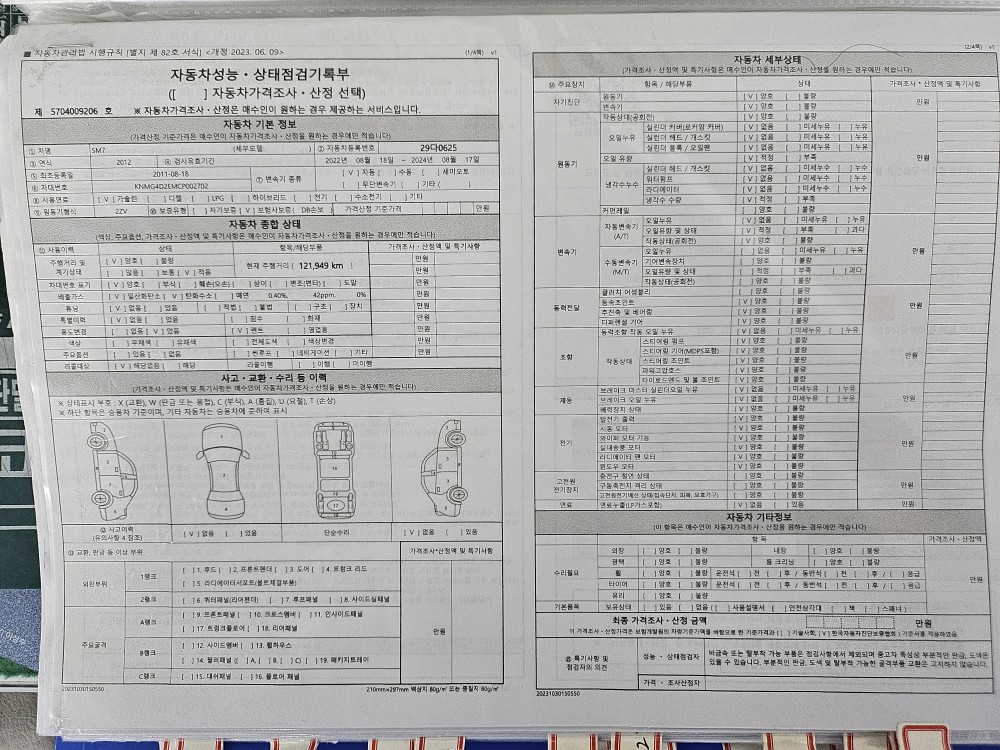 ■ 자동차관리법 시행규칙 [별지 제 82호 서식] <개정 2023. 06. 09>
(1/4쪽) v1
자동차성능・상태점검기록부
([ ] 자동차가격조사・산정 선택)
제 5704009206 호 ※ 자동차가격조사・산정은 매수인이 원하는 경우 제공하는 서비스입니다.
자동차 기본 정보
(가격산정 기준가격은 매수인이 자동차가격조사・산정을 원하는 경우에만 적습니다)
① 차명 SM7 (세부모델: ) ② 자동차등록번호 29다0625
③ 연식 2012 ④ 검사유효기간 2022년 08월 18일 ~ 2024년 08월 17일
⑤ 최초등록일 2011-08-18 ⑦ 변속기 종류 [ V ] 자동 [ ] 수동 [ ] 세미오토
⑥ 차대번호 KNMG4D2EMCP002702 [ ] 무단변속기 [ ] 기타 ( )
⑧ 사용연료 [ V ] 가솔린 [ ] 디젤 [ ] LPG [ ] 하이브리드 [ ] 전기 [ ] 수소전기 [ ] 기타
⑨ 원동기형식 2ZV ⑩ 보증유형 [ ] 자가보증 [ V ] 보험사보증 DB손보 가격산정 기준가격 만원
자동차 종합 상태
(색상, 주요옵션, 가격조사・산정액 및 특기사항은 매수인이 자동차가격조사・산정을 원하는 경우에만 적습니다)
⑪ 사용이력 상태 항목/해당부품 가격조사・산정액 및 특기사항
주행거리 및 계기상태 [ V ] 양호 [ ] 불량 현재 주행거리 [ 121,949 km ] 만원
[ ] 많음 [ ] 보통 [ V ] 적음 만원
차대번호 표기 [ V ] 양호 [ ] 부식 [ ] 훼손(오손) [ ] 상이 [ ] 변조(변타) [ ] 도말 만원
배출가스 [ V ] 일산화탄소 [ V ] 탄화수소 [ ] 매연 0.40%, 42ppm, 0% 만원
튜닝 [ V ] 없음 [ ] 있음 [ ] 적법 [ ] 불법 [ ] 구조 [ ] 장치 만원
특별이력 [ V ] 없음 [ ] 있음 [ ] 침수 [ ] 화재 만원
용도변경 [ ] 없음 [ V ] 있음 [ V ] 렌트 [ ] 영업용 만원
색상 [ ] 무채색 [ ] 유채색 [ ] 전체도색 [ ] 색상변경 만원
주요옵션 [ ] 있음 [ ] 없음 [ ] 썬루프 [ ] 네비게이션 [ ] 기타 만원
리콜대상 [ V ] 해당없음 [ ] 해당 리콜이행 [ ] 이행 [ ] 미이행
사고・교환・수리 등 이력
(가격조사・산정액 및 특기사항은 매수인이 자동차가격조사・산정을 원하는 경우에만 적습니다)
※ 상태표시 부호 : X (교환), W (판금 또는 용접), C (부식), A (흠집), U (요철), T (손상)
※ 하단 항목은 승용차 기준이며, 기타 자동차는 승용차에 준하여 표시
⑫ 사고이력 (유의사항 4 참조) [ V ] 없음 [ ] 있음 단순수리 [ V ] 없음 [ ] 있음
⑬ 교환, 판금 등 이상 부위 가격조사・산정액 및 특기사항
외판부위 1랭크 [ ] 1. 후드 [ ] 2. 프론트휀더 [ ] 3. 도어 [ ] 4. 트렁크 리드
[ ] 5. 라디에이터서포트(볼트체결부품)
2랭크 [ ] 6. 쿼터패널(리어휀더) [ ] 7. 루프패널 [ ] 8. 사이드실패널
주요골격 A랭크 [ ] 9. 프론트패널 [ ] 10. 크로스멤버 [ ] 11. 인사이드패널 만원
[ ] 17. 트렁크플로어 [ ] 18. 리어패널
B랭크 [ ] 12. 사이드멤버 [ ] 13. 휠하우스
[ ] 14. 필러패널 ([ ] A, [ ] B, [ ] C) [ ] 19. 패키지트레이
C랭크 [ ] 15. 대쉬패널 [ ] 16. 플로어 패널
20231030150550
210mm×297mm 백상지 80g/㎡ 또는 중질지 80g/㎡
(2/4쪽) v1
자동차 세부상태
(가격조사・산정액 및 특기사항은 매수인이 자동차가격조사・산정을 원하는 경우에만 적습니다)
⑭ 주요장치 항목 / 해당부품 상태 가격조사・산정액 및 특기사항
자기진단 원동기 [ V ] 양호 [ ] 불량 만원
변속기 [ V ] 양호 [ ] 불량
원동기 작동상태(공회전) [ V ] 양호 [ ] 불량 만원
오일누유 실린더 커버(로커암 커버) [ V ] 없음 [ ] 미세누유 [ ] 누유
실린더 헤드 / 개스킷 [ V ] 없음 [ ] 미세누유 [ ] 누유
실린더 블록 / 오일팬 [ V ] 없음 [ ] 미세누유 [ ] 누유
오일 유량 [ V ] 적정 [ ] 부족
냉각수누수 실린더 헤드 / 개스킷 [ V ] 없음 [ ] 미세누수 [ ] 누수
워터펌프 [ V ] 없음 [ ] 미세누수 [ ] 누수
라디에이터 [ V ] 없음 [ ] 미세누수 [ ] 누수
냉각수 수량 [ V ] 적정 [ ] 부족
커먼레일 [ ] 양호 [ ] 불량
변속기 자동변속기 (A/T) 오일누유 [ V ] 없음 [ ] 미세누유 [ ] 누유 만원
오일유량 및 상태 [ V ] 적정 [ ] 부족 [ ] 과다
작동상태(공회전) [ V ] 양호 [ ] 불량
수동변속기 (M/T) 오일누유 [ ] 없음 [ ] 미세누유 [ ] 누유
기어변속장치 [ ] 양호 [ ] 불량
오일유량 및 상태 [ ] 적정 [ ] 부족 [ ] 과다
작동상태(공회전) [ ] 양호 [ ] 불량
동력전달 클러치 어셈블리 [ ] 양호 [ ] 불량 만원
등속조인트 [ V ] 양호 [ ] 불량
추진축 및 베어링 [ ] 양호 [ ] 불량
디퍼렌셜 기어 [ ] 양호 [ ] 불량
조향 동력조향 작동 오일 누유 [ V ] 없음 [ ] 미세누유 [ ] 누유 만원
작동상태 스티어링 펌프 [ V ] 양호 [ ] 불량
스티어링 기어(MDPS포함) [ V ] 양호 [ ] 불량
스티어링 조인트 [ V ] 양호 [ ] 불량
파워고압호스 [ V ] 양호 [ ] 불량
타이로드엔드 및 볼 조인트 [ V ] 양호 [ ] 불량
제동 브레이크 마스터 실린더오일 누유 [ V ] 없음 [ ] 미세누유 [ ] 누유 만원
브레이크 오일 누유 [ V ] 없음 [ ] 미세누유 [ ] 누유
배력장치 상태 [ V ] 양호 [ ] 불량
전기 발전기 출력 [ V ] 양호 [ ] 불량 만원
시동 모터 [ V ] 양호 [ ] 불량
와이퍼 모터 기능 [ V ] 양호 [ ] 불량
실내송풍 모터 [ V ] 양호 [ ] 불량
라디에이터 팬 모터 [ V ] 양호 [ ] 불량
윈도우 모터 [ V ] 양호 [ ] 불량
고전원 전기장치 충전구 절연 상태 [ ] 양호 [ ] 불량 만원
구동축전지 격리 상태 [ ] 양호 [ ] 불량
고전원전기배선 상태(접속단자, 피복, 보호기구) [ ] 양호 [ ] 불량
연료 연료누출(LP가스포함) [ V ] 없음 [ ] 있음 만원
자동차 기타정보
(이 항목은 매수인이 자동차가격조사・산정을 원하는 경우에만 적습니다)
항 목 가격조사・산정액
수리필요 외장 [ ] 양호 [ ] 불량 내장 [ ] 양호 [ ] 불량 만원
광택 [ ] 양호 [ ] 불량 룸 크리닝 [ ] 양호 [ ] 불량
휠 [ ] 양호 [ ] 불량 운전석 [ ] 전 [ ] 후 / 동반석 [ ] 전 [ ] 후 / [ ] 응급
타이어 [ ] 양호 [ ] 불량 운전석 [ ] 전 [ ] 후 / 동반석 [ ] 전 [ ] 후 / [ ] 응급
유리 [ ] 양호 [ ] 불량
기본품목 보유상태 [ ] 있음 [ ] 없음 ([ ] 사용설명서 [ ] 안전삼각대 [ ] 잭 [ ] 스패너)
최종 가격조사・산정 금액 만원
이 가격조사・산정가격은 보험개발원의 차량기준가액을 바탕으로 한 기준가격과 ([ ] 기술사회, [ V ] 한국자동차진단보증협회) 기준서를 적용하였음
⑮ 특기사항 및 점검자의 의견 성능・상태점검자 비금속 또는 탈부착 가능 부품은 점검사항에서 제외되며 중고차 특성상 부분적인 판금, 도색은
있을 수 있습니다. 부분적인 판금, 도색 및 탈부착 가능한 골격부위 교환은 고지하지 않습니다.
가격・조사산정자
20231030150550